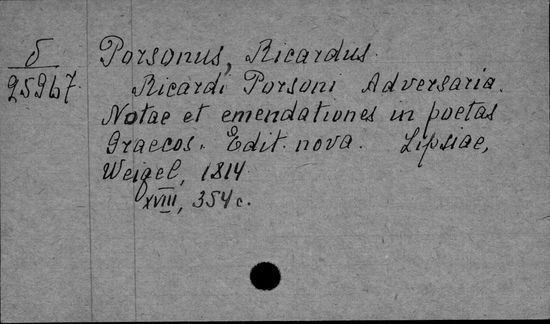 б
25967
Porsonus, Ricardus.
Ricardi Porsoni Adversaria.
Notae et emendationes in poetas
Graecos. Edit. nova. Lipsiae,
Weigel, 1814.
XVIII, 354 c.